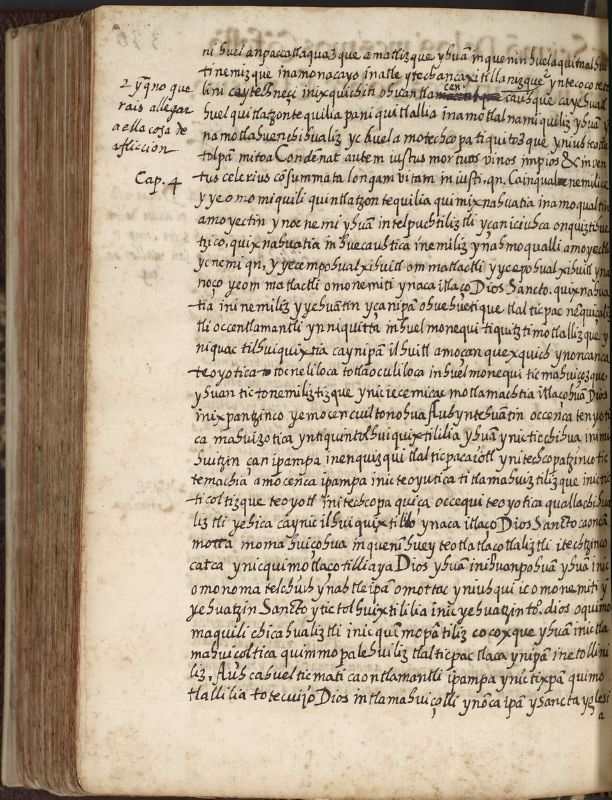 ni huel anpaccatlaquazque amatlizque yhuā inquenin huel aquimalhui
tinemizque inamonacayo in atle ytechancaxitillanizque yntecocotest
lini caytechneçi inixquichin ohuantlamaçen cauhque caychualt
huel quitlatzontequilia pani quitlallia inamotlalnamiquiliz yhuā y
namotlahuenchihualiz yc huel amotechcopa tiquitozque yniuh teotla
tolpā mitoa Condenat autem iustus mortuus vivos impios & iuven
tus celerius cōsummata longam vitam in iusti. qn. Cainqualnemilice
yye omomiquili quintlatzontequilia quimixnahuatia inamoqualtin
amoyectin ynocnemi yhuā intelpuchtiliztli ycaniciuhca onquiztihue
tzico, quixnahuatia in huecauhtica inemiliz ynahmoqualli amoyectli
ycnemi qn, yyecempohualxihuitl ommatlactli yycepohualxihuitl yna
noço yeom matlactli omonemiti ynaca itlaço Dios Sancto. quixnahua
tia ininemiliz yychuātin ycanipā ohuehuetique tlalticpac nequiçali
tli occentlamantli ynniquitta in huel monequi tiquitztimotlallizque y
niquac tilhuiquixtia caynipā ilhuitl amoçan quexquich ynoncanca
teoyotica tocneliloca totlaoculiloca inhuel monequi ticmahuiçozque
yhuan tictonemiliztizque yniciecemicac motlamachtia itlaçohuā Dios
inixpantzinco yemocencuiltonohua Auh yntehuātin occenca tenyoti
ca mahuizotica yntiquintolhuiquixtililia yhuā ynicticchihua inimil
huitzin çan ipampa inenquizqui tlalticpacaiotl ynitechcopatzinco tic
temachia, amocenca ipampa inicteoyutica titlamahuiztilizque inic tic
ticoltizque teoyotl initechcopa quiça occequi teoyotica quallachihua
liztli yehica caynic ilhuiquixtillo ynaca itlaço Dios Sancto caonca
motta momahuiçohua inquenī huey teotlatlaçotlaliztli itechtzinco
catca ynicquimotlaçotilliaya Dios yhuā inihuanpohuā yhuā inic
omonoma telchiuh ynahtleipā omottac yniuhqui ic omonemiti y
yehuatzin Sancto ytictolhuixtililia inic yehuatzin to. dios oquimo
maquili chicahualiztli inic quimopātiliz cocoxque yhuā inictla
mahuicoltica quimmopalehuiliz tlalticpac tlaca ynipā inetollini
liz, Auh cahuel ticmati caontlamantli ipampa ynictixpā quimo
tlallilia totecuiyo Dios intlamahuiçolli ynōca ipā ySancta yglesi
a
2 yq̄ no que
rais allegar
a ella cosa de
aflicción
Cap. 4